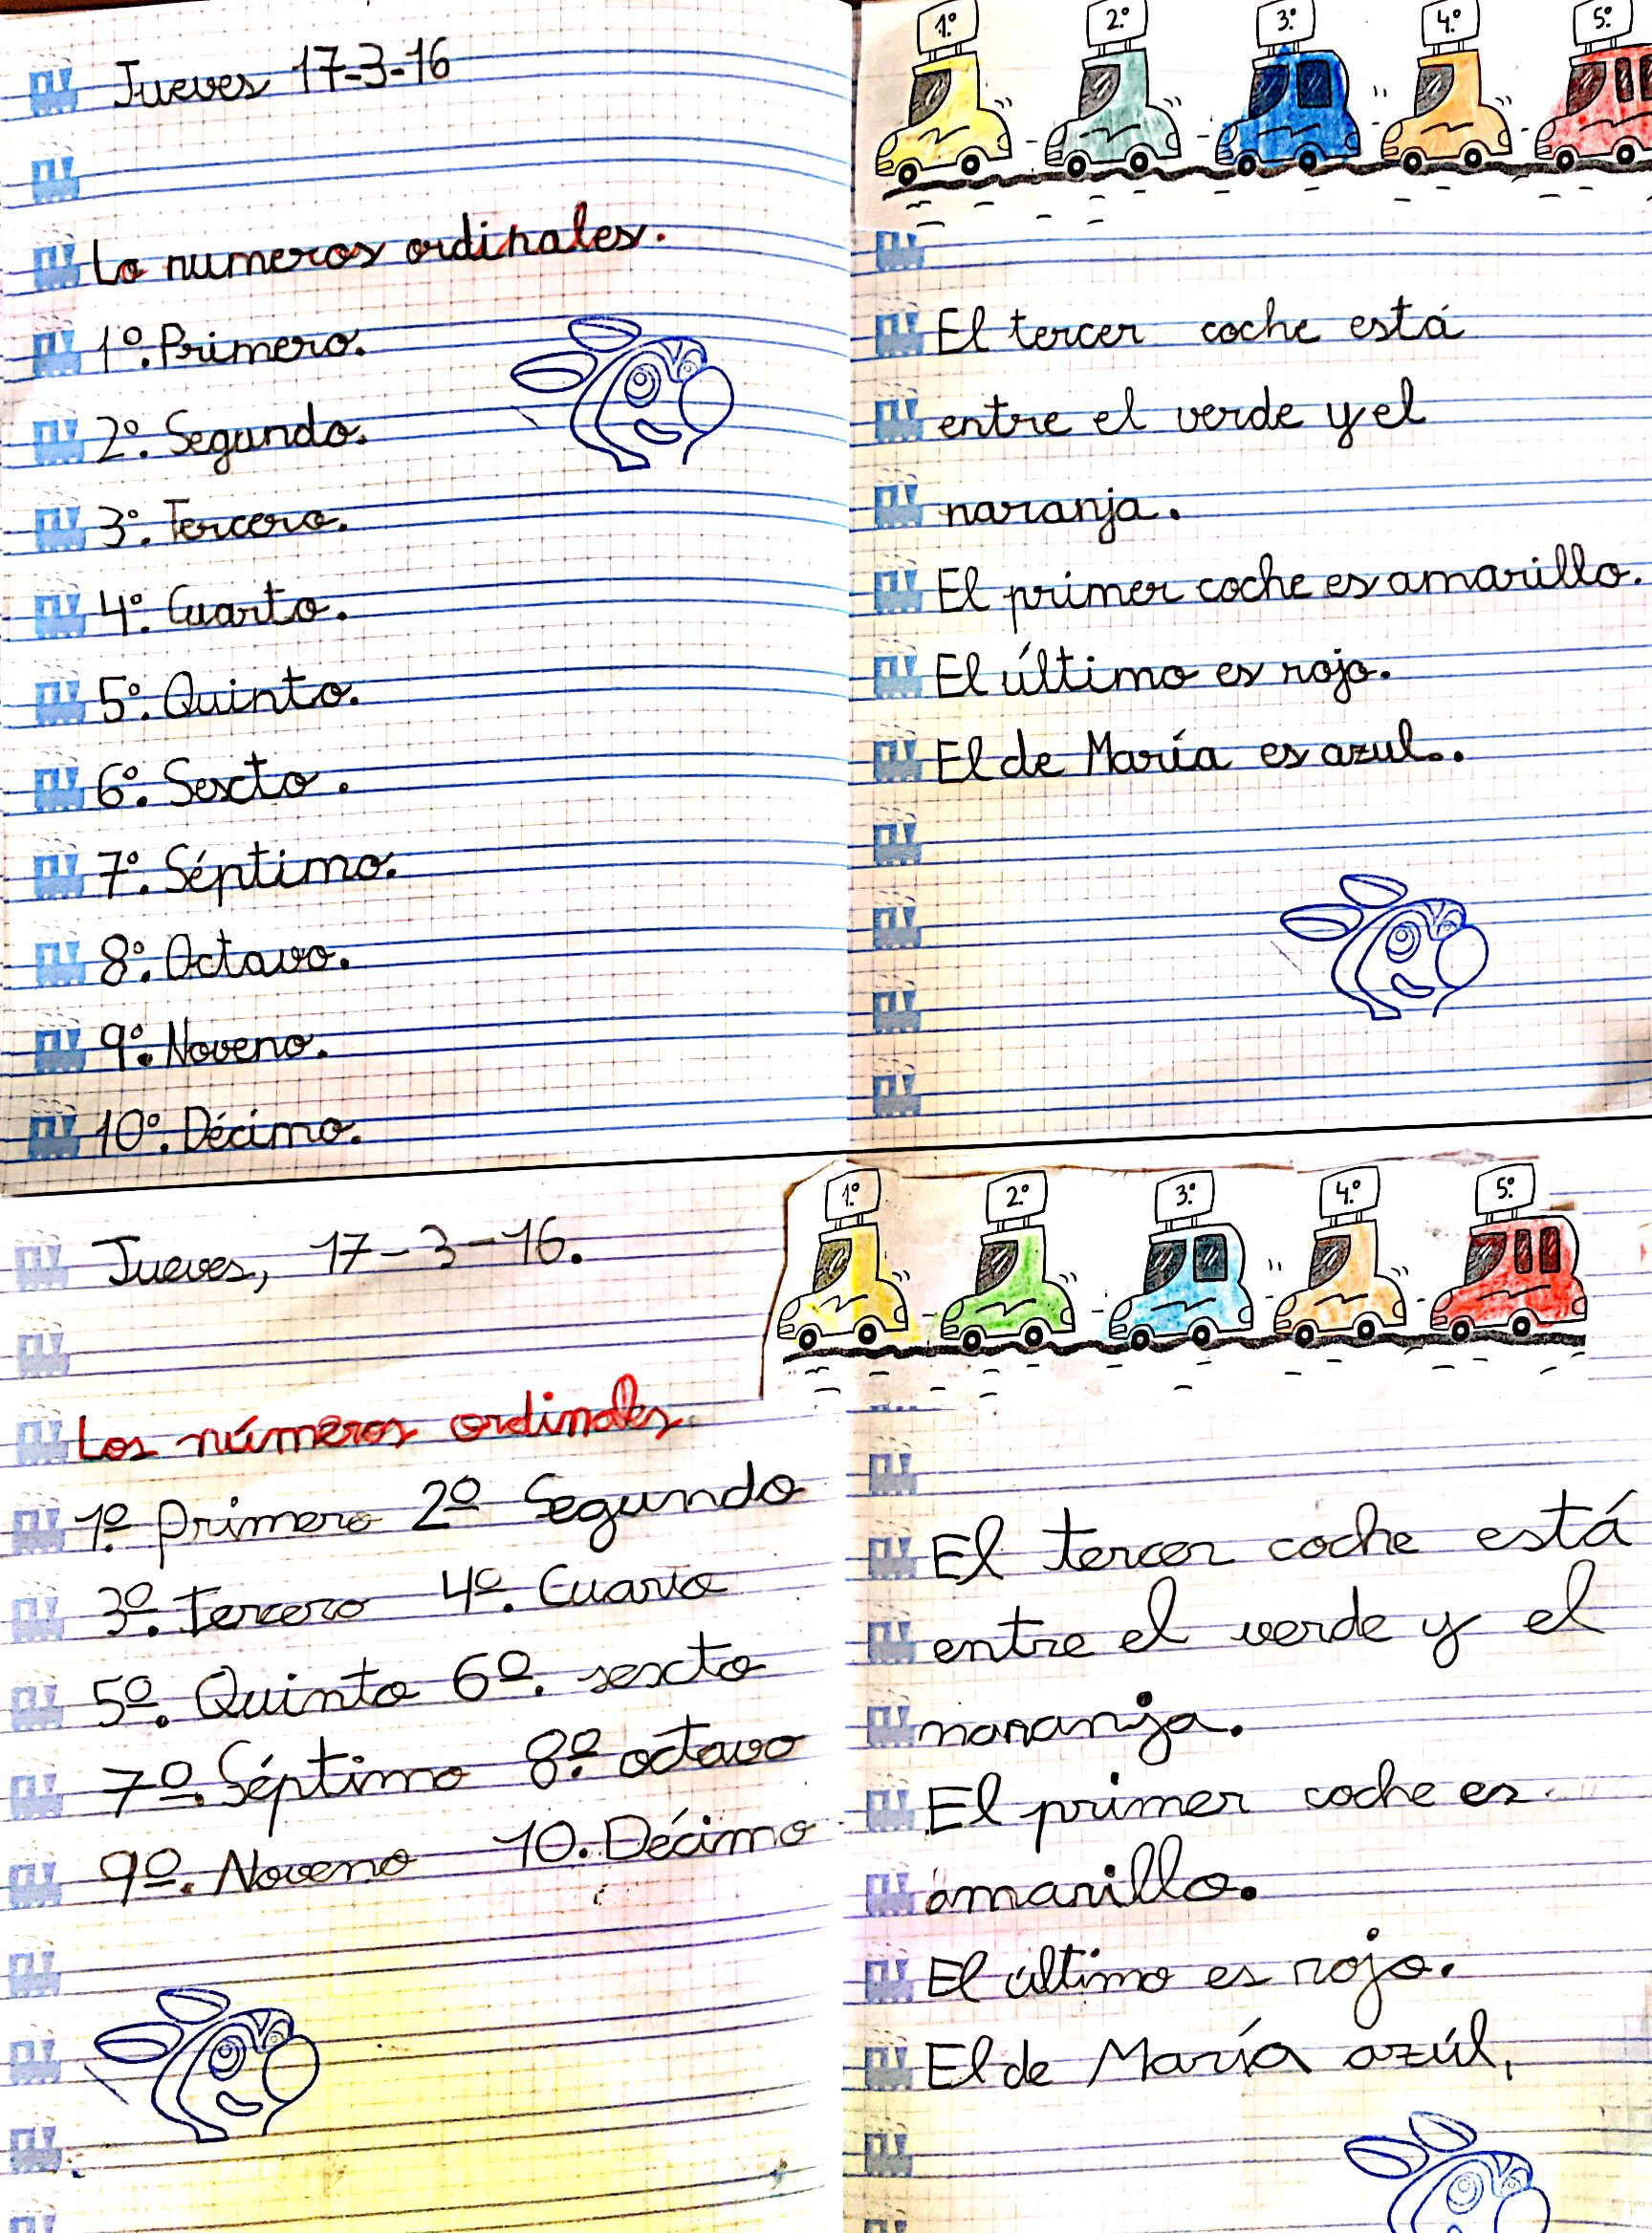 Jueves 17-3-16
Lo numeros ordinales.
1º. Primero.
2º. Segundo.
3º. Tercero.
4º. Cuarto.
5º. Quinto.
6º. Sexcto.
7º. Séptimo.
8º. Octavo.
9º. Noveno.
10º. Décimo.
1º 2º 3º 4º 5º
El tercer coche está
entre el verde y el
naranja.
El primer coche es amarillo.
El último es rojo.
El de María es azul..
Jueves, 17-3-16.
Los números ordinales.
1º. Primero 2º Segundo
3º. Tercero 4º. Cuarto
5º. Quinto 6º. sexcto
7º. Séptimo 8º. octavo
9º. Noveno 10. Décimo
1º 2º 3º 4º 5º
El tercer coche está
entre el verde y el
naranja.
El primer coche es
amarillo.
El último es rojo.
El de María azúl,